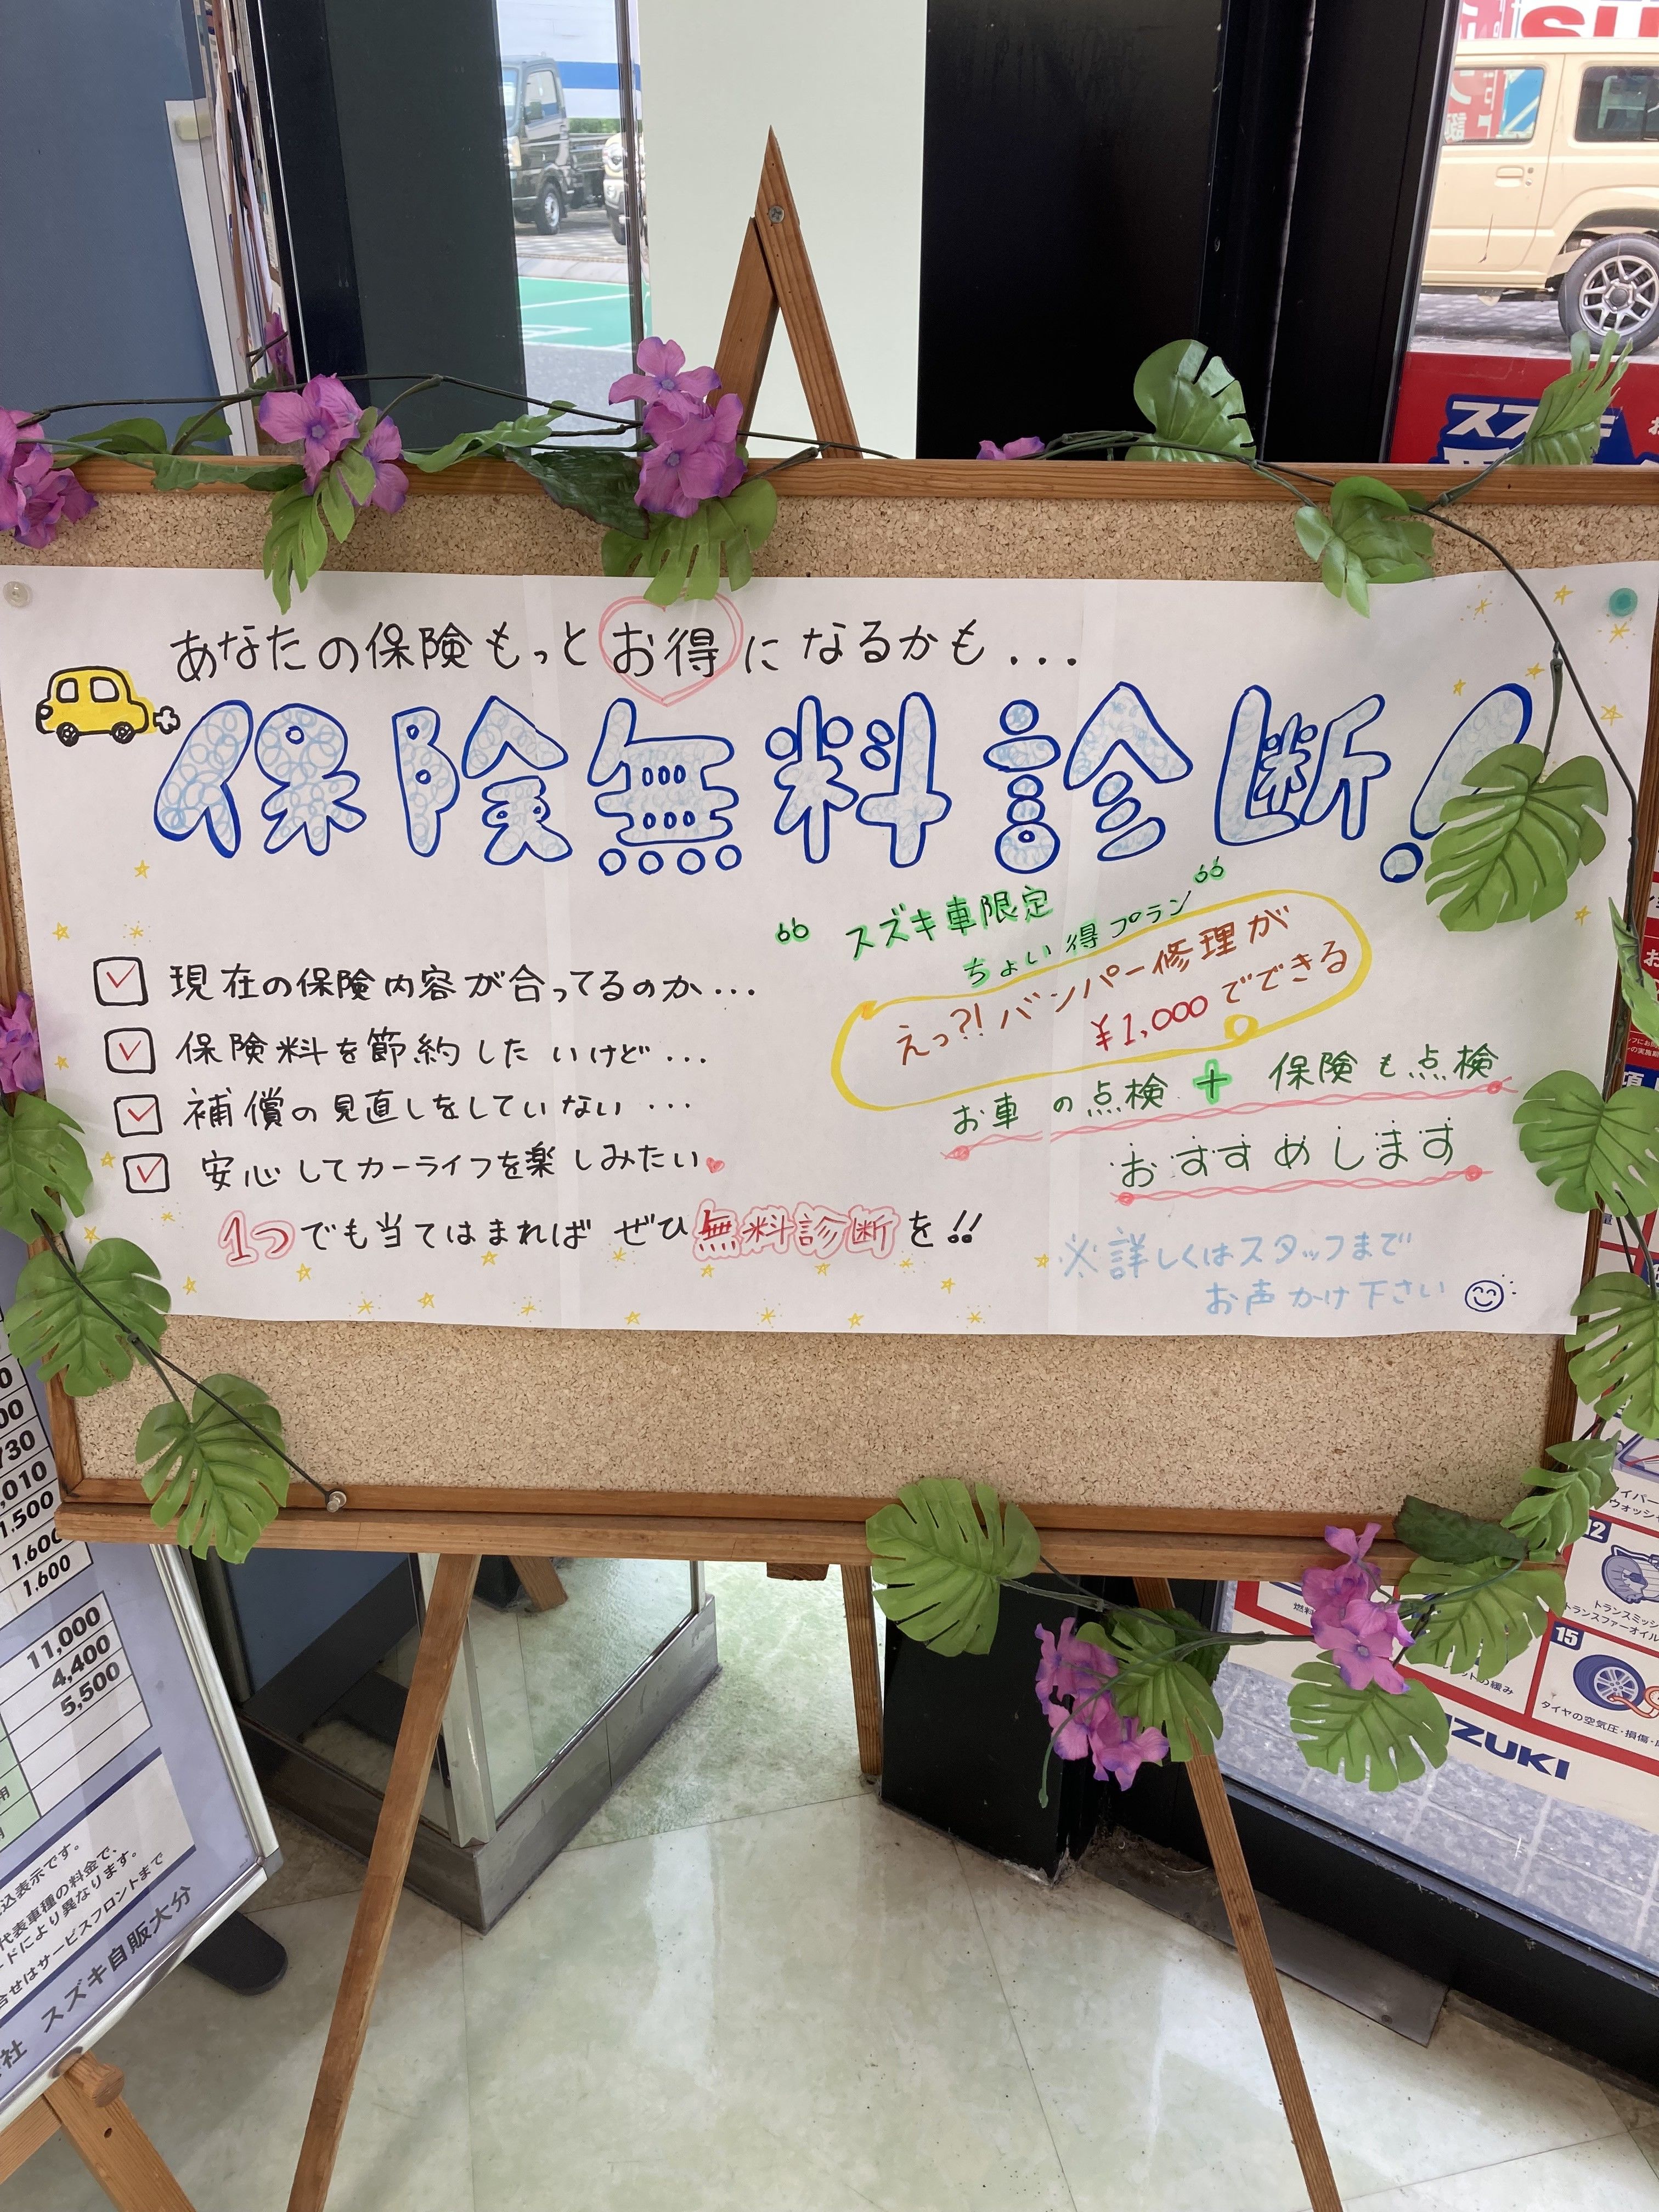 あなたの保険もっとお得になるかも...
保険無料診断!
現在の保険内容が合ってるのか...
保険料を節約したいけど...
補償の見直しをしていない...
安心してカーライフを楽しみたい
1つでも当てはまれば ぜひ無料診断を!!
スズキ車限定
ちょい得プラン
えっ?!バンパー修理が
¥1,000でできる
お車の点検+保険も点検
おすすめします
※詳しくはスタッフまで
お声かけ下さい
730
1.500
1.600
1.600
11,000
4,400
5,500
込表示です。
代表車種の料金で、
ードにより異なります。
合せはサービスフロントまで
社 スズキ自販大分
スズキ
12
トランスミッシ
トランスファーオイル
15
タイヤの空気圧・損傷・
の緩み
UZUKI